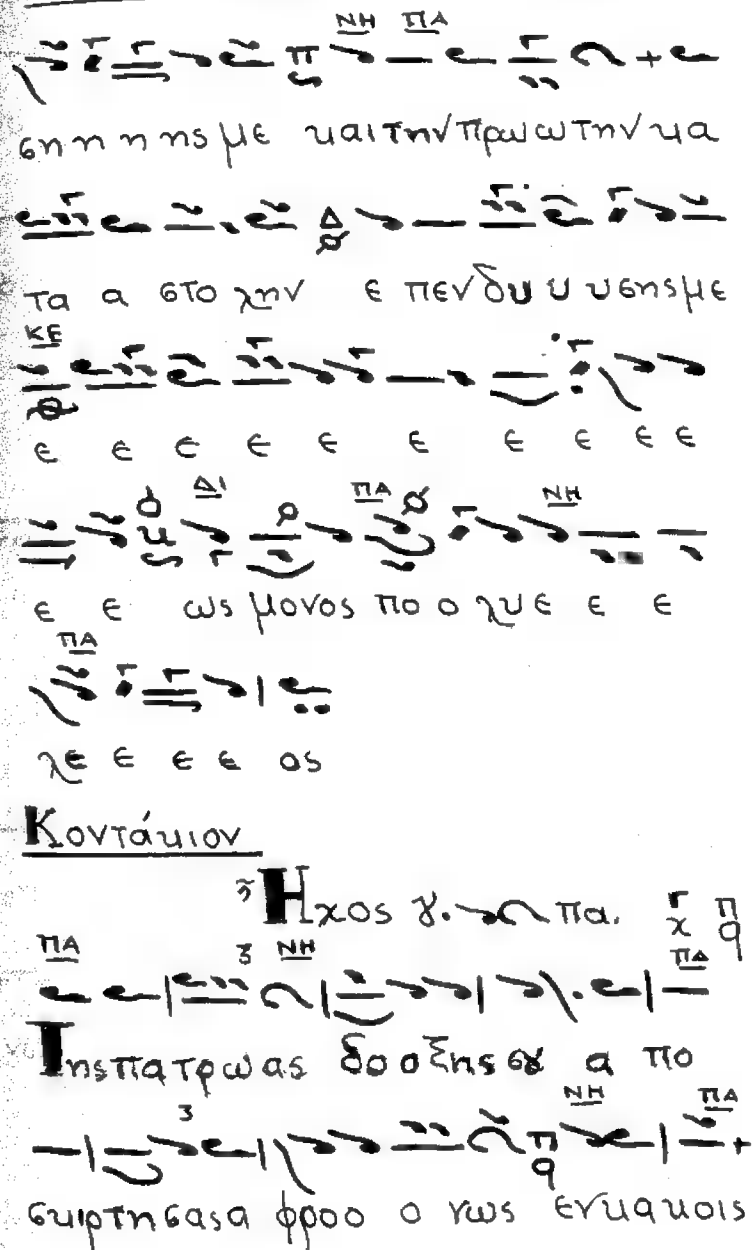 ΝΗ ΠΑ
π
ση η η ης με και την πρω ω την κα
Δ
τα α στο λην ε πεν δυ υ υ σης με
ΚΕ
ε ε ε ε ε ε ε ε ε ε
ΔΙ ΠΑ ΝΗ
ε ε ως μονος πο ο λυ ε ε ε
ΠΑ
λε ε ε ε ος
Κοντάκιον
Ήχος γ. πα.
ΠΑ ΝΗ ΠΑ
Της πατρωας δο ο ξης σȣ α πο
ΝΗ ΠΑ
σκιρτησας α φρο ο ο νως εν κακοις